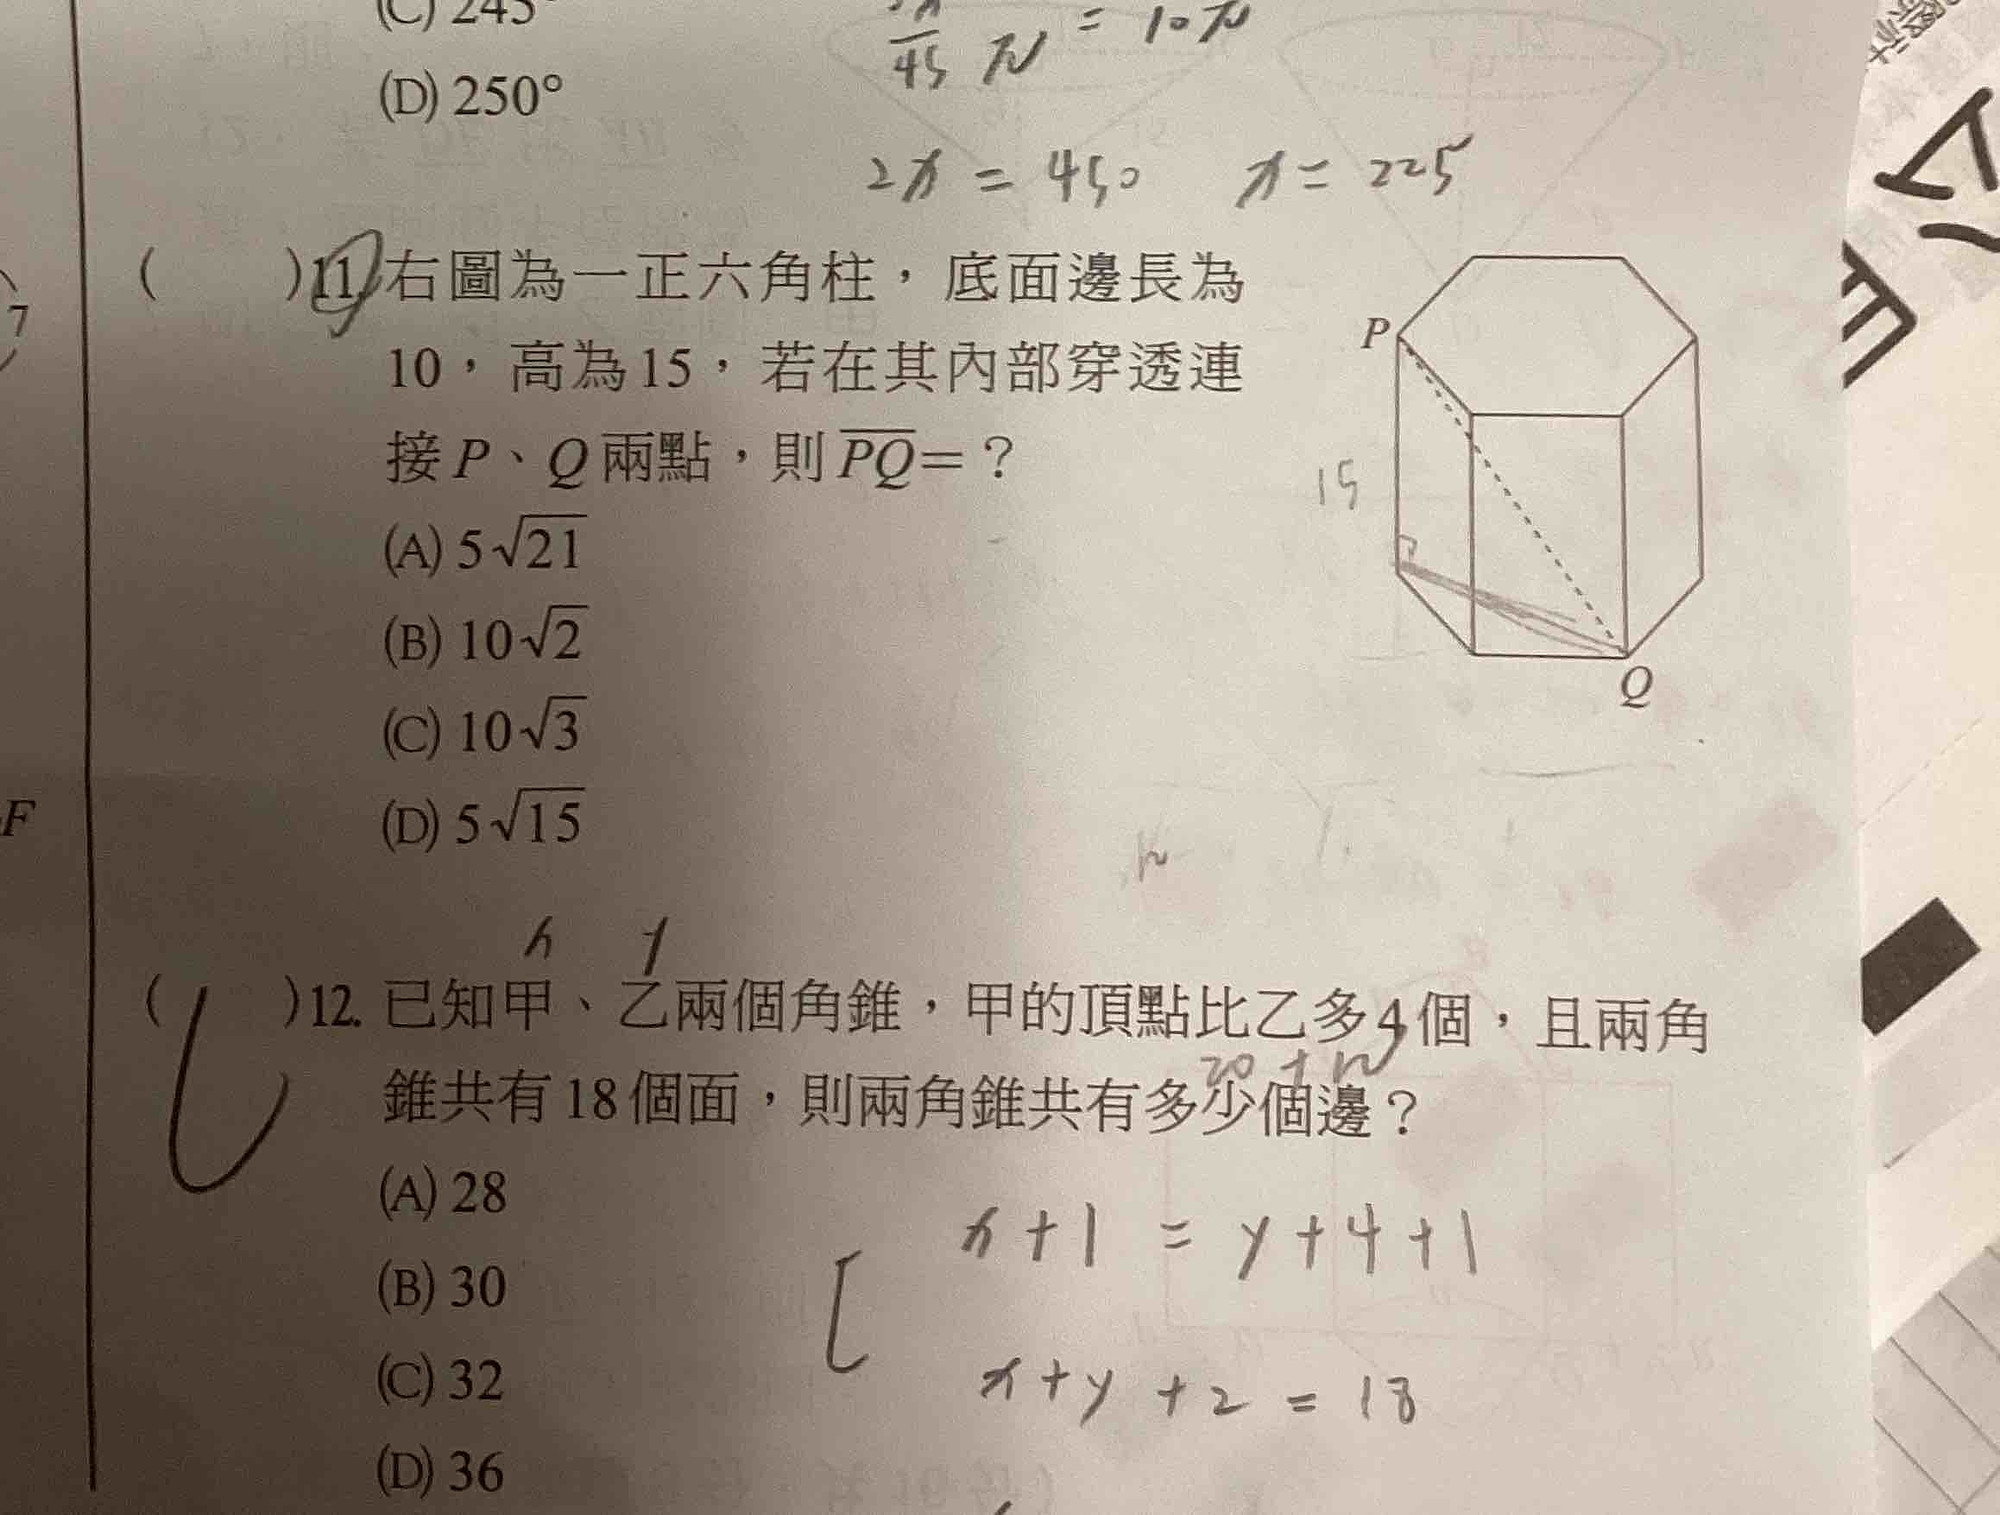 (C) 245°
(D) 250°
45 π = 10π
2x = 450 x = 225
( )11. 右圖為一正六角柱，底面邊長為
10，高為15，若在其內部穿透連
接P、Q兩點，則PQ=？
(A) 5√21
(B) 10√2
(C) 10√3
(D) 5√15
P
15
Q
7
F
( )12. 已知甲、乙兩個角錐，甲的頂點比乙多4個，且兩角
錐共有18個面，則兩角錐共有多少個邊？
(A) 28
(B) 30
(C) 32
(D) 36
x+1 = y+4+1
x+y+2 = 18